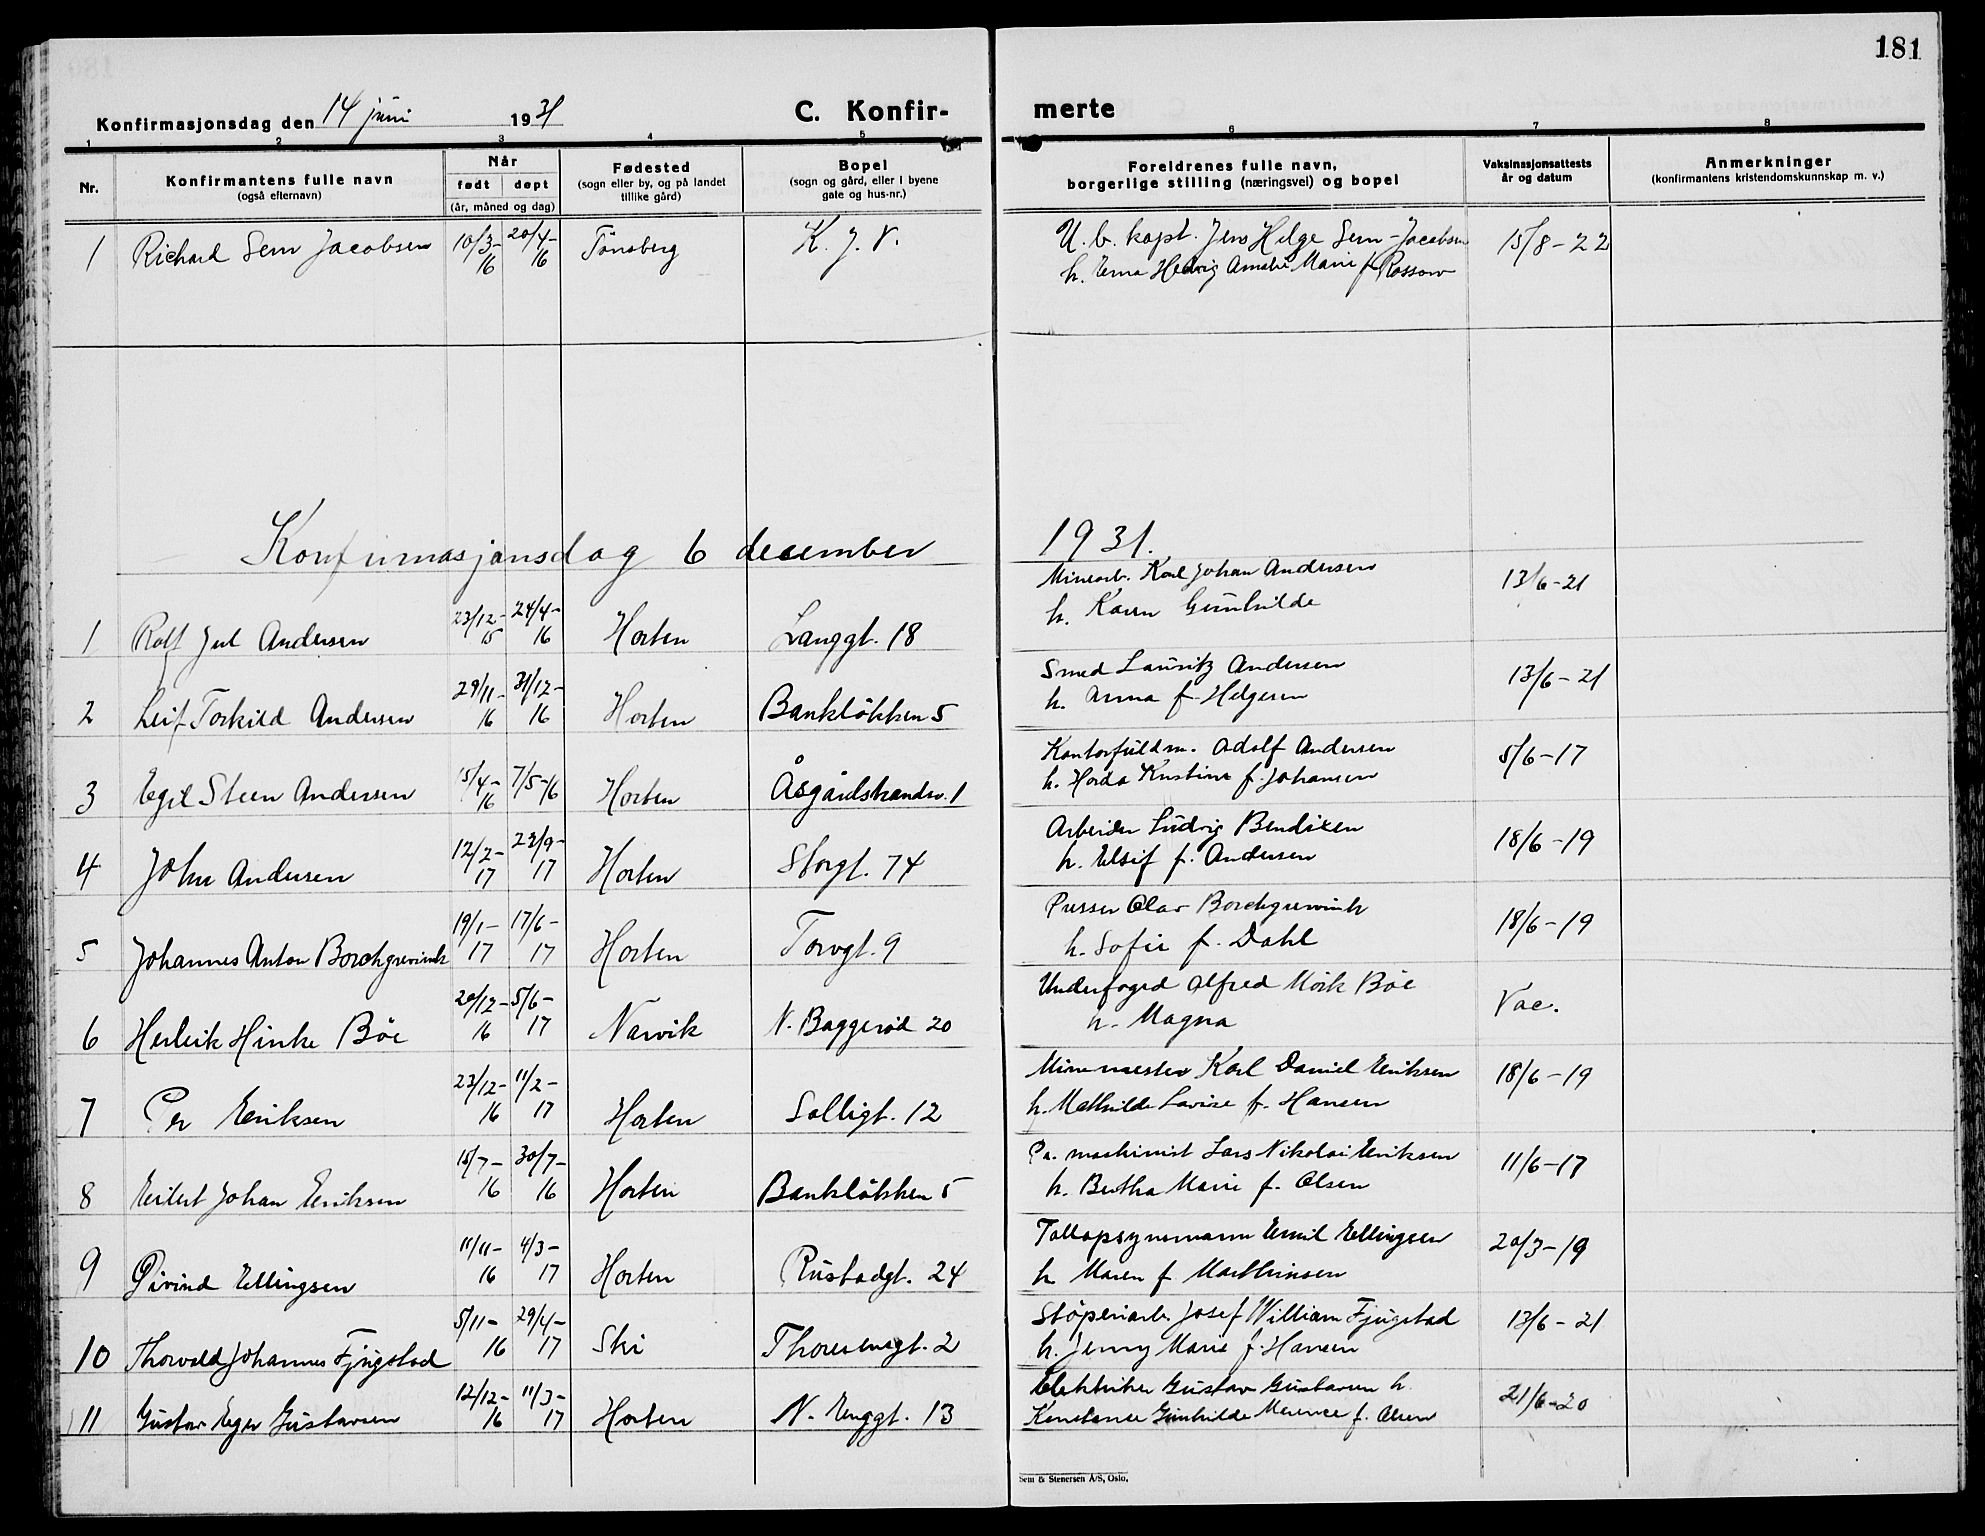 181
Konfirmasjonsdag den 14 juni 1931 C. Konfir- merte
1 2 3 4 5 6 7 8
Nr. Konfirmantens fulle navn (også efternavn) Når født døpt (år, måned og dag) Fødested (sogn eller by, og på landet tillike gård) Bopel (sogn og gård, eller i byene gate og hus-nr.) Foreldrenes fulle navn, borgerlige stilling (næringsvei) og bopel Vaksinasjonsattests år og datum Anmerkninger (konfirmantens kristendomskunnskap m. v.)
1 Richard Sem Jacobsen 10/3-16 20/4-16 Tönsberg K. J. V. U. b. kapt. Jens Helge Sem-Jacobsen 15/8-22
h. Erna Hedvig Amalie Marie f. Rossow
Konfirmasjonsdag 6 december 1931.
1 Rolf Jul Andersen 23/12-15 24/4-16 Horten Langgt. 18 Minearb. Karl Johan Andersen 13/6-21
h. Karen Gunhilde
2 Leif Torkild Andersen 29/11-16 31/12-16 Horten Banklökken 5 Smed Lauritz Andersen 13/6-21
h. Anna f. Helgesen
3 Egil Steen Andersen 15/4-16 7/5-16 Horten Åsgårdstrandsv. 1 Kontorfuldm. Adolf Andersen 5/6-17
h. Horda Kristine f. Johansen
4 John Andersen 12/2-17 23/9-17 Horten Storgt. 74 Arbeider Ludvig Bendixen 18/6-19
h. Elsif f. Andersen
5 Johannes Anton Borchgrevink 19/1-17 17/6-17 Horten Torvgt. 9 Presser Olav Borchgrevink 18/6-19
h. Sofie f. Dahl
6 Herleik Hinke Böe 20/12-16 5/6-17 Narvik N. Baggeröd 20 Underfoged Alfred Mörk Böe Vac.
h. Magna
7 Per Eriksen 23/12-16 11/2-17 Horten Solligt. 12 Minemester Karl Daniel Eriksen 18/6-19
h. Mathilde Lovise f. Hansen
8 Eilert Johan Eriksen 15/7-16 30/7-16 Horten Banklökken 5 maskinist Lars Nikolai Eriksen 11/6-17
h. Bertha Marie f. Olsen
9 Øivind Ellingsen 11/11-16 4/3-17 Horten Rustadgt. 24 Tollopsynsmann Emil Ellingsen 20/3-19
h. Maren f. Marthinsen
10 Thorvald Johannes Fjugstad 5/11-16 29/4-17 Ski Thoresensgt. 2 Stöperiarb. Josef William Fjugstad 13/6-21
h. Jenny Marie f. Hansen
11 Gustav Eger Gustavsen 12/12-16 11/3-17 Horten N. Enggt. 13 Elektriker Gustav Gustavsen h. 21/6-20
Konstance Gunhilde Merence f. Olsen
Sem & Stenersen A/S, Oslo.